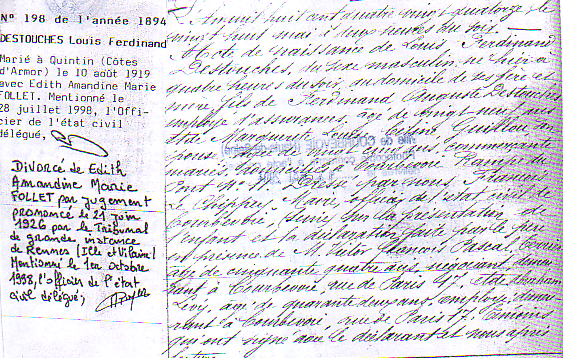 N° 198 de l'année 1894
DESTOUCHES Louis Ferdinand
Marié à Quintin (Côtes
d'Armor) le 10 août 1919
avec Edith Amandine Marie
FOLLET. Mentionné le
28 juillet 1998, l'Offi-
cier de l'état civil
délégué,
DIVORCÉ de Edith
Amandine Marie
FOLLET par jugement
prononcé le 21 juin
1926 par le Tribunal
de grande instance
de Rennes (Ille et Vilaine)
Mentionné le 1er octobre
1998, l'officier de l'état
civil délégué;
L'An mil huit cent quatre vingt quatorze, le
vingt huit mai à heures du soir.
Acte de naissance de Louis, Ferdinand
Destouches, du sexe masculin, né hier à
quatre heures du soir, au domicile de ses père et
mère, fils de Ferdinand Auguste Destouches
employé d'assurances, âgé de vingt neuf ans,
et de Marguerite Louise Céline Guillou, son
épouse, âgée de ans, commerçante
mariés à Courbevoie, Rampe du
Pont n° Dressé par nous,
Maire, officier de l'état civil de
Courbevoie, Seine, sur la présentation de
l'enfant et la déclaration faite par le père
en présence de M. François Pascal
âgé de cinquante quatre ans, négociant, demeu-
rant à Courbevoie, rue de Paris 17, et de
Lévy, âgé de quarante deux ans, employé, demeu-
rant à Courbevoie, rue de Paris 17, témoins
qui ont signé avec le déclarant et nous après